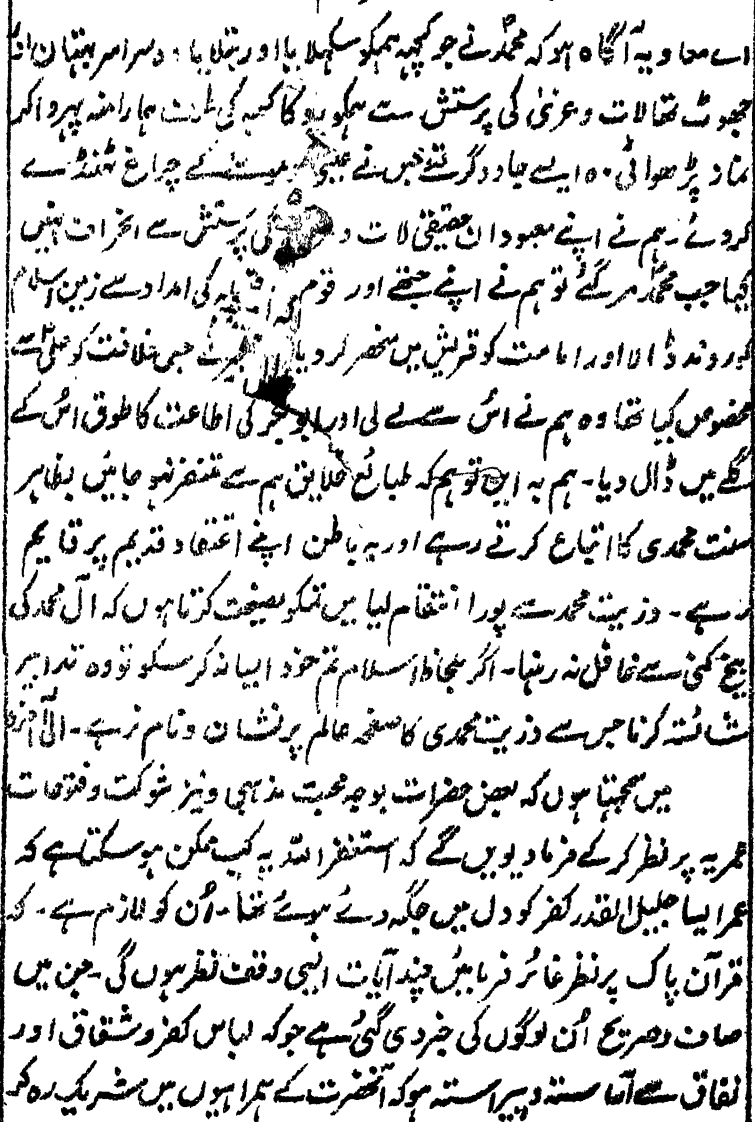 اے معاویہ آگاہ ہو کہ محمدؐ نے جو کچھ ہمکو سکہلایا اور بتلایا وہ سراسر بہتان اور
جھوٹ تھا لات وعزیٰ کی پرستش سے ہمکو روکا کعبہ کی طرف ہمارا منہ پہرواکر
نماز پڑھوائی۔ وہ ایسے جادوگر تھے جس نے عیسیٰ کے چراغ ٹھنڈے
کردئے۔ ہم نے اپنے معبودان حقیقی لات و کی پرستش سے انحراف نہیں
کیا جب محمدؐ مرگئے تو ہم نے اپنے جتھے اور قوم کی امداد سے زمین اسلام
کو روند ڈالا اور امامت کو قریش میں منحصر کر دیا نے جس خلافت کو علیؑ سے
مخصوص کیا تھا وہ ہم نے اس سے لے لی اور ابوبکر کی اطاعت کا طوق اس کے
گلے میں ڈال دیا۔ ہم بہ این توہم کہ طبائع خلایق ہم سے متنفر نہو جائیں بظاہر
سنت محمدی کا اتباع کرتے رہے اور بہ باطن اپنے اعتقاد قدیم پر قایم
رہے۔ وذریت محمد سے پورا انتقام لیا میں تمکو نصیحت کرتا ہوں کہ آل محمد کی
بیخ کنی سے غافل نہ رہنا۔ اگر بلحاظ اسلام تم خود ایسا نہ کر سکو تو وہ تدابیر
شائستہ کرنا جس سے ذریت محمدی کا صفحہ عالم پر نشان ونام نرہے۔ الیٰ آخرہ
میں سمجہتا ہوں کہ بعض حضرات بوجہ محبت مذہبی ونیز شوکت وفتوحات
عمریہ پر نظر کرکے فرمادیویں گے کہ استغفر اللہ یہ کب ممکن ہوسکتا ہے کہ
عمر ایسا جلیل القدر کفر کو دل میں جگہ دئے ہوئے تھا۔ اُن کو لازم ہے۔ کہ
قرآن پاک پر نظر غائر فرمائیں چند آیات ایسی وقف نظر ہوں گی۔ جن میں
صاف وصریح اُن لوگوں کی خبر دی گئی ہے جو کہ لباس کفر وشقاق اور
نفاق سے آراستہ و پیراستہ ہو کہ آنحضرت کے ہمراہیوں میں شریک رہ کر